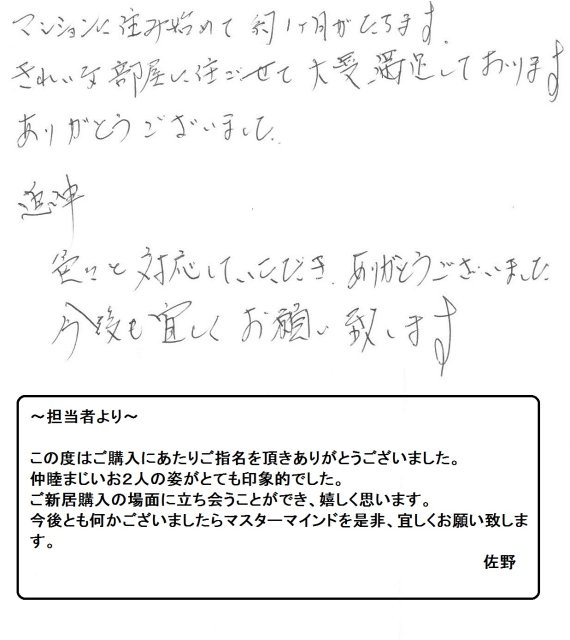 マンションに住み始めて約1ヶ月がたちます。
きれいな部屋に住ごせて大変満足しております
ありがとうございました。
追伸
色々と対応していただき、ありがとうございました
今後も宜しくお願い致します
～担当者より～
この度はご購入にあたりご指名を頂きありがとうございました。
仲睦まじいお２人の姿がとても印象的でした。
ご新居購入の場面に立ち会うことができ、嬉しく思います。
今後とも何かございましたらマスターマインドを是非、宜しくお願い致しま
す。
佐野